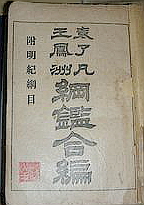 袁了凡
王鳳洲
綱鑑合編
附明紀綱目